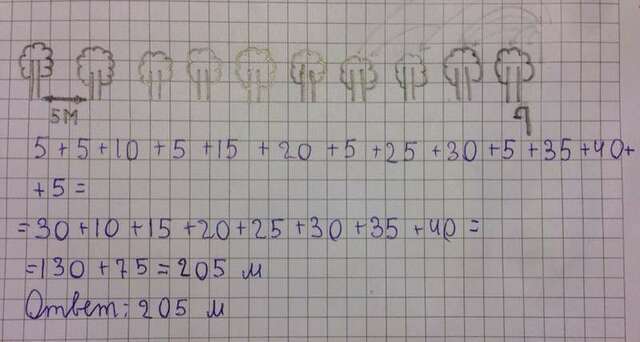 5М
9
5 + 5 + 10 + 5 + 15 + 20 + 5 + 25 + 30 + 5 + 35 + 40 +
+ 5 =
= 30 + 10 + 15 + 20 + 25 + 30 + 35 + 40 =
= 130 + 75 = 205 м
Ответ: 205 м